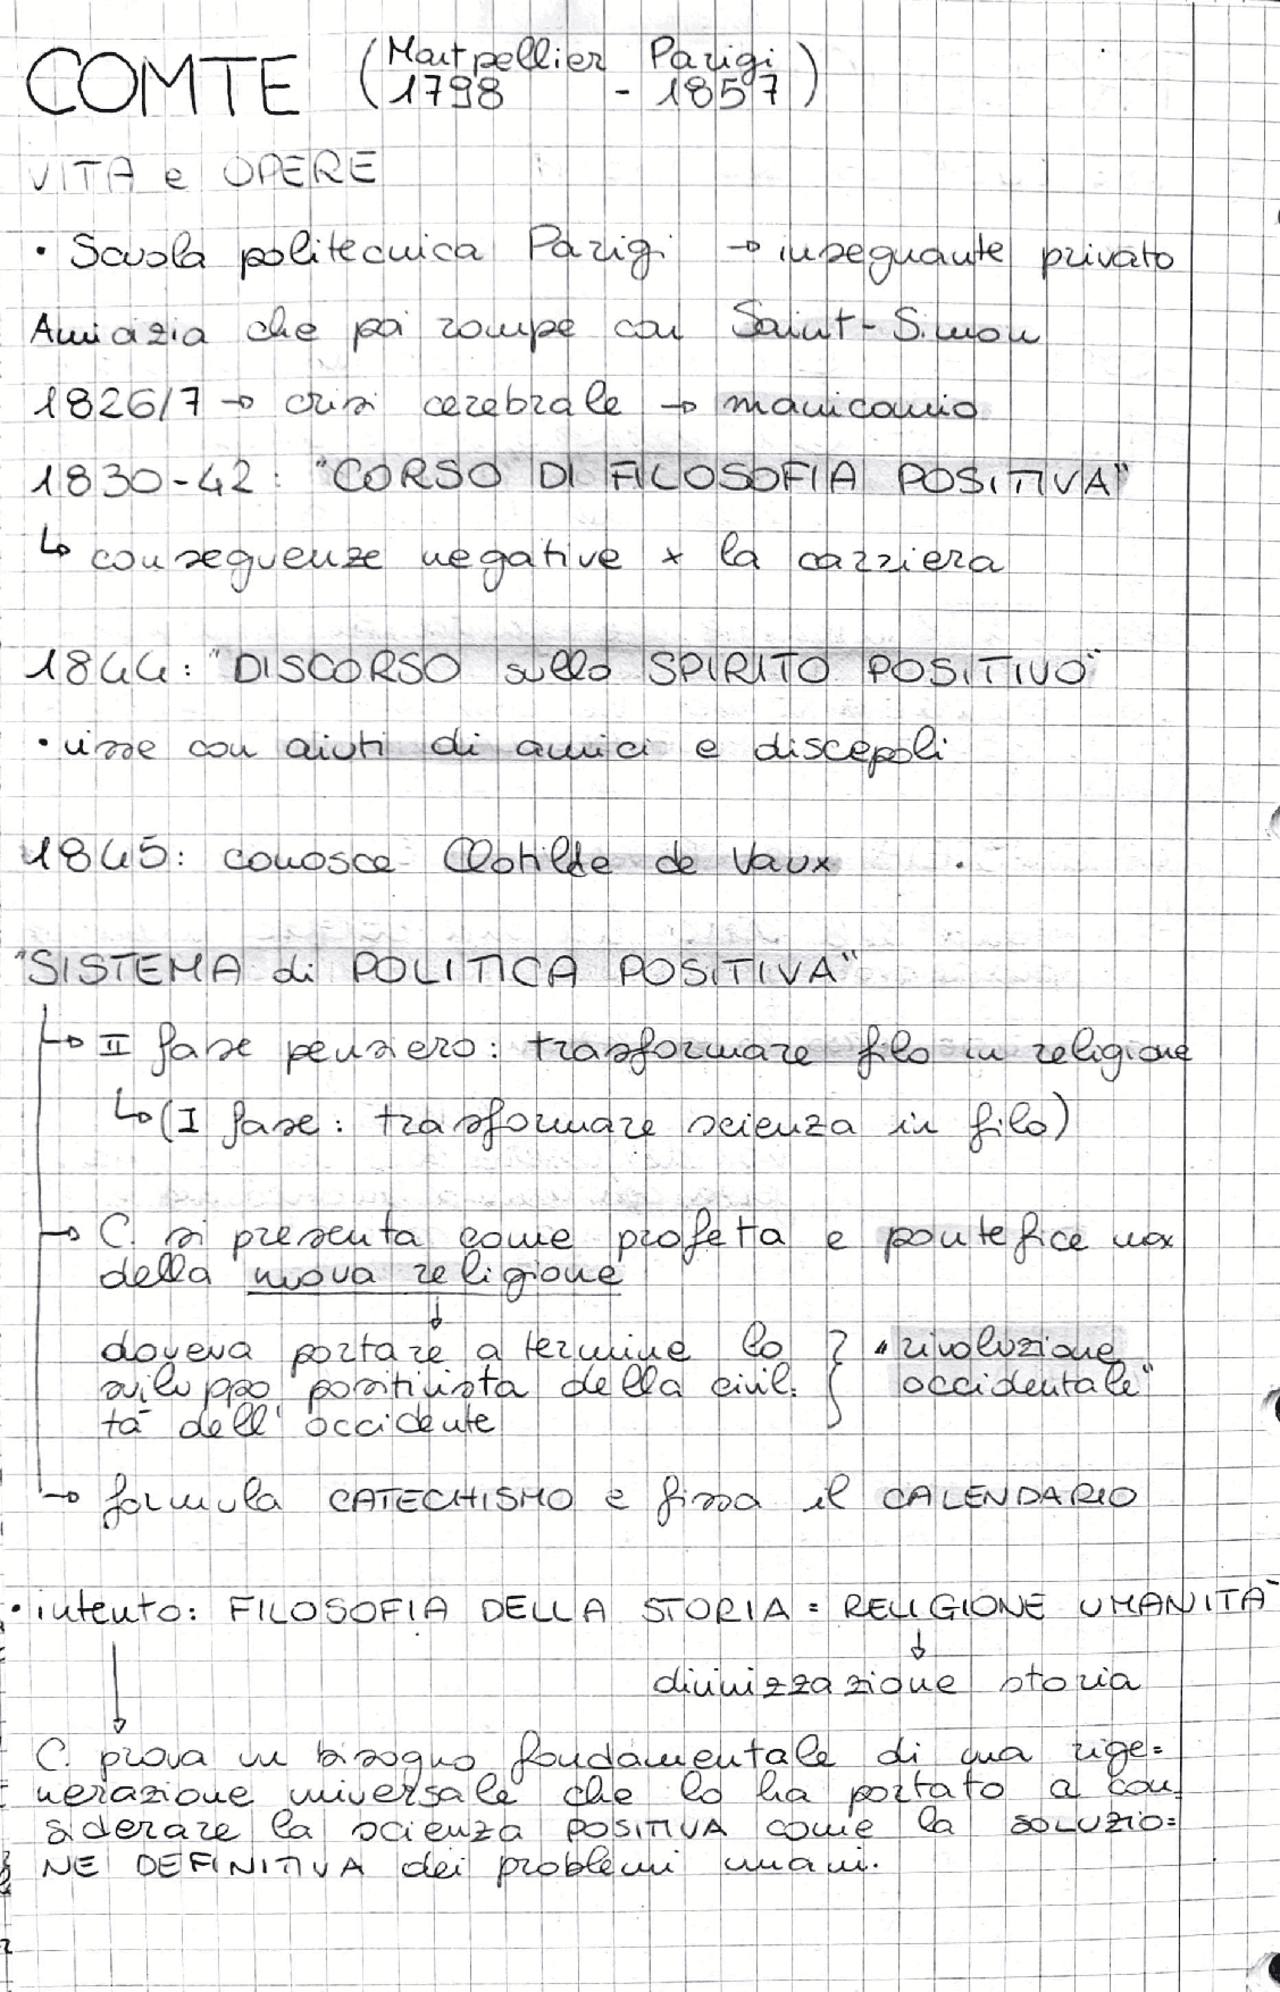 COMTE (Montpellier Parigi
1798 - 1857)
VITA e OPERE
• Scuola politecnica Parigi → insegnante privato
Amicizia che poi rompe con Saint-Simon
1826/7 → crisi cerebrale → manicomio
1830-42: "CORSO DI FILOSOFIA POSITIVA"
↳ conseguenze negative x la carriera
1844: "DISCORSO sullo SPIRITO POSITIVO"
• visse con aiuti di amici e discepoli
1845: conosce Clotilde de Vaux
"SISTEMA di POLITICA POSITIVA"
↳ II fase pensiero: trasformare filo in religione
↳ (I fase: trasformare scienza in filo)
→ C. si presenta come profeta e pontefice max
della nuova religione
↓
doveva portare a termine lo } "rivoluzione
sviluppo positivista della civil- occidentale"
tà dell'occidente
→ formula CATECHISMO e fissa il CALENDARIO
• intento: FILOSOFIA DELLA STORIA = RELIGIONE UMANITÀ
↓
divinizzazione storia
↓
C. prova un bisogno fondamentale di una rige=
nerazione universale che lo ha portato a con-
siderare la scienza POSITIVA come la SOLUZIO=
NE DEFINITIVA dei problemi umani.